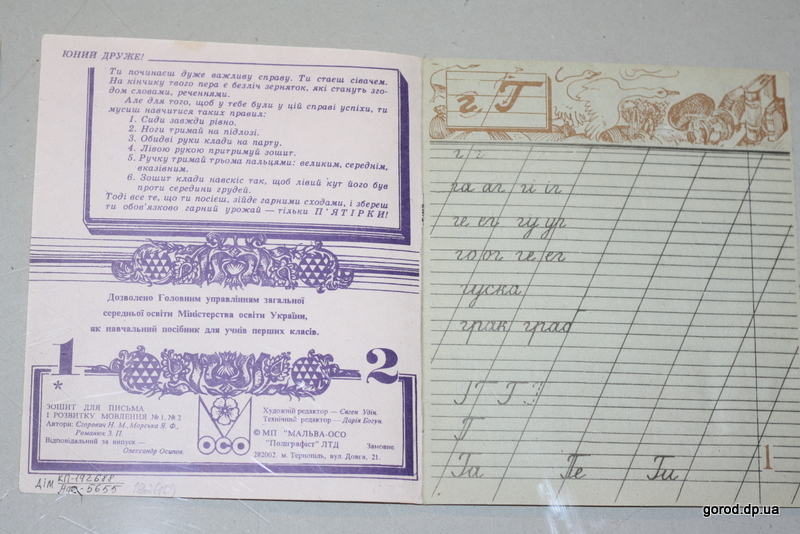 ЮНИЙ ДРУЖЕ!
Ти починаєш дуже важливу справу. Ти стаєш сівачем.
На кінчику твого пера є безліч зерняток, які стануть зго-
дом словами, реченнями.
Але для того, щоб у тебе були у цій справі успіхи, ти
мусиш навчитися таких правил:
1. Сиди завжди рівно.
2. Ноги тримай на підлозі.
3. Обидві руки клади на парту.
4. Лівою рукою притримуй зошит.
5. Ручку тримай трьома пальцями: великим, середнім,
вказівним.
6. Зошит клади навскіс так, щоб лівий кут його був
проти середини грудей.
Тоді все те, що ти посієш, зійде гарними сходами, і збереш
ти обов'язково гарний урожай — тільки П'ЯТІРКИ!
Дозволено Головним управлінням загальної
середньої освіти Міністерства освіти України,
як навчальний посібник для учнів перших класів.
1 2
*
ЗОШИТ ДЛЯ ПИСЬМА
І РОЗВИТКУ МОВЛЕННЯ № 1, № 2
Автори: Єгорович Н. М., Морська Я. Ф.,
Романюк З. П.
Відповідальний за випуск —
Олександр Осипов.
МОСО
Художній редактор — Євген Удін.
Технічний редактор — Дарія Богун.
© МП "МАЛЬВА-ОСО
"Поліграфіст" ЛТД
Замовне
282002. м. Тернопіль, вул. Довга, 21.
ДІМ КП-192688
5655
г Г
г г
га аг гі іг
ге ег гу уг
го ог ге ег
гуска
грак граб
Г Г Г
Г
Га Ге Ги
1
gorod.dp.ua